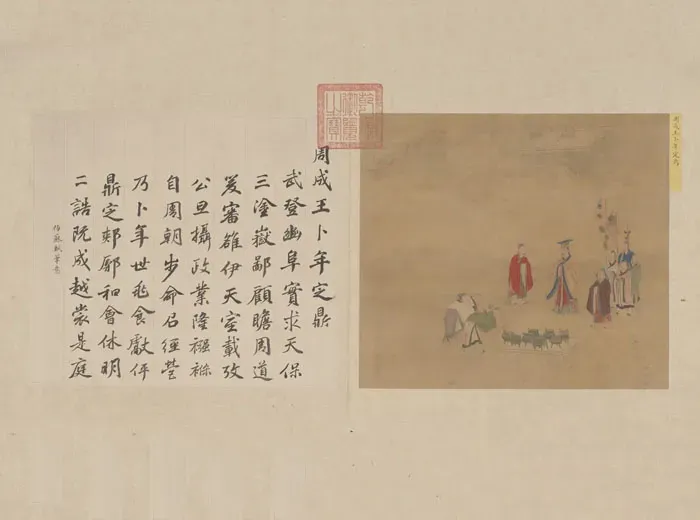 周成王卜年定鼎
周成王卜年定鼎
武登豳阜實求天保
三塗嶽鄙顧瞻周道
爰審雒伊天室載攷
公旦攝政業隆襁褓
自周朝步命召經營
乃卜年世兆食獻伻
鼎定郟鄏和會休明
二誥既成越裳是庭
仿蘇軾筆意
乾隆御覽之寶